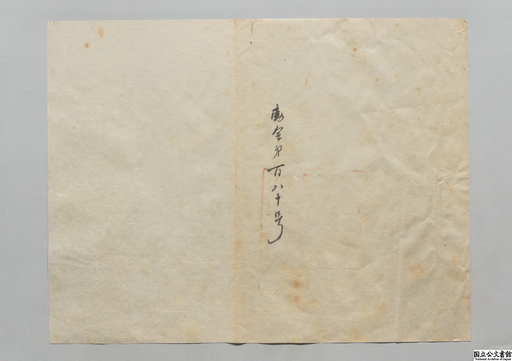 第百八十号
国立公文書館
National Archives of Japan